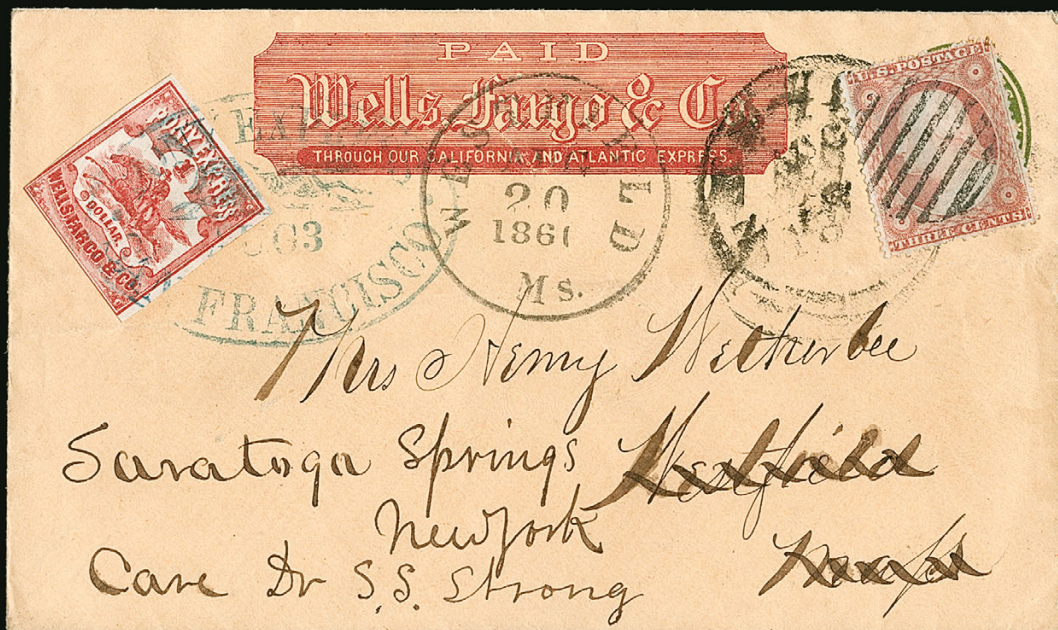 PAID
Wells, Fargo & Co.
THROUGH OUR CALIFORNIA AND ATLANTIC EXPRESS.
PONY EXPRESS
1
DOLLAR.
WELLS, FARGO & CO.
FRANCISCO.
WESTFIELD
20
1861
Ms.
U.S. POSTAGE
THREE CENTS
Mrs Henry Wetherbee
Saratoga Springs Westfield
New York
Care Dr S.S. Strong Mass